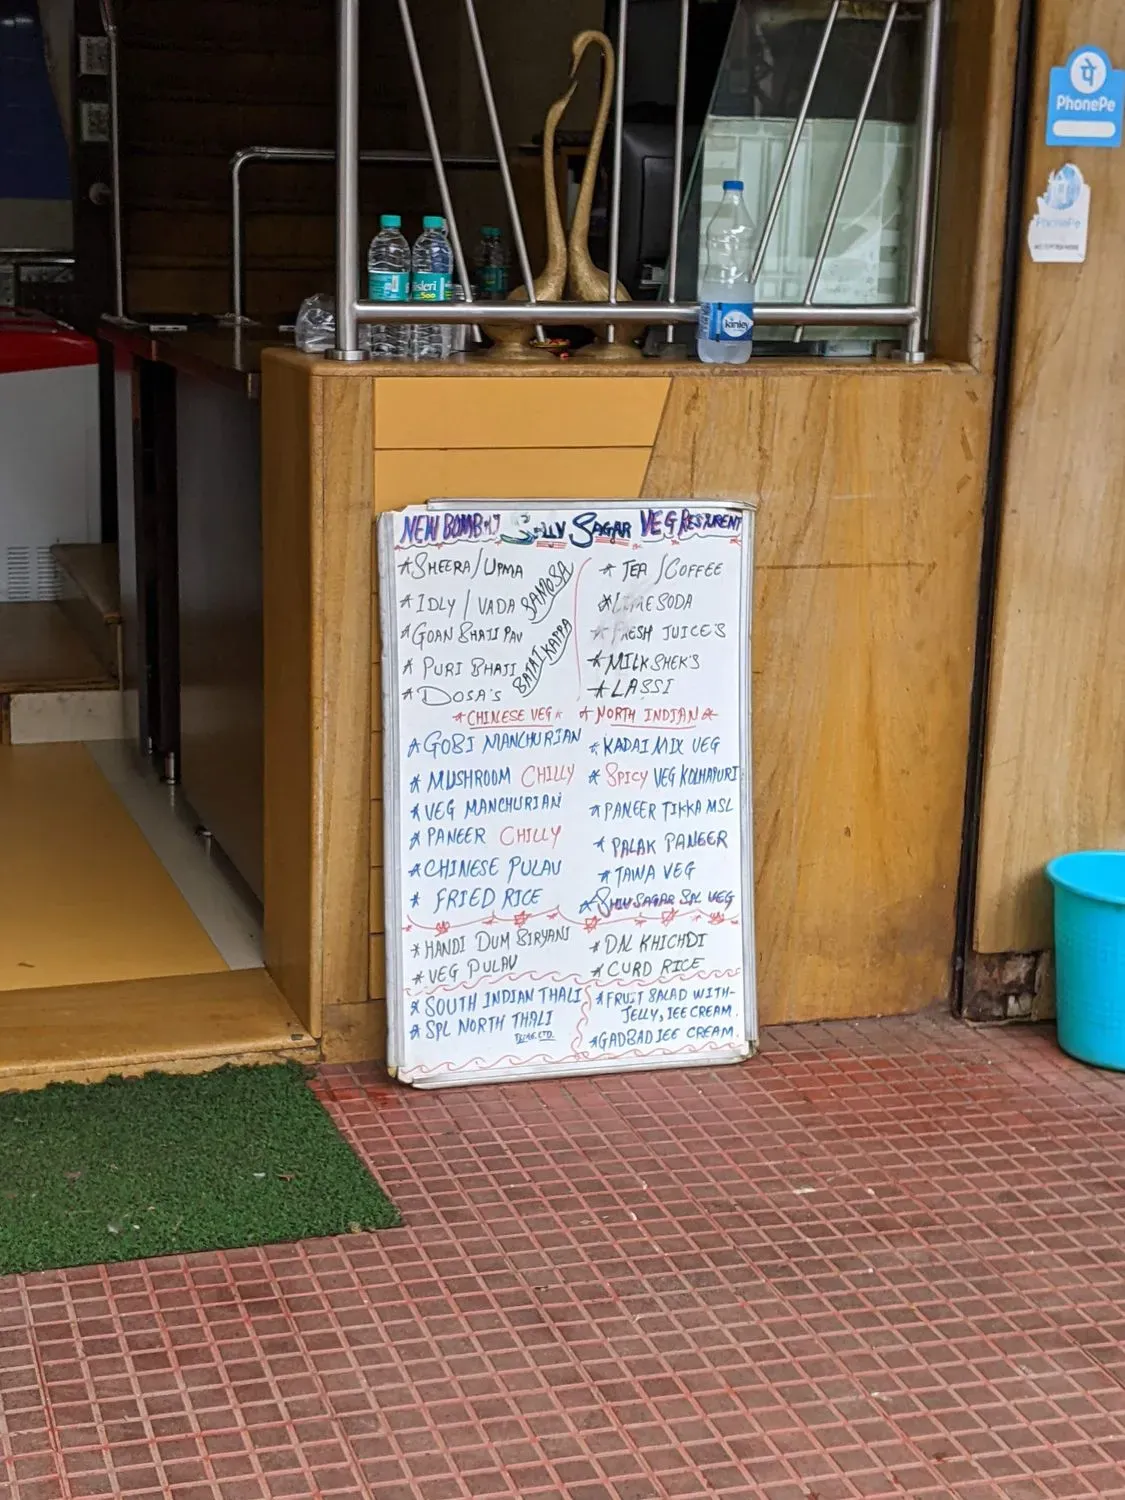 पे
PhonePe
PhonePe
kinley
500
NEW BOMBAY SHIV SAGAR VEG RESTURENT
*SHEERA/UPMA
*IDLY / VADA
SAMOSA
*GOAN BHAJI PAV
* PURI BHAJI
BATAT KAPPA
*DOSA'S
* TEA / COFFEE
*LIME SODA
* FRESH JUICE'S
*MILKSHEK'S
*LASSI
*CHINESE VEG*
*GOBI MANCHURIAN
* MUSHROOM CHILLY
*VEG MANCHURIAN
*PANEER CHILLY
*CHINESE PULAV
* FRIED RICE
*NORTH INDIAN*
*KADAI MIX VEG
* SPICY VEG KOLHAPURI
*PANEER TIKKA MSL
* PALAK PANEER
*TAWA VEG
*SHIV SAGAR SPL VEG
*HANDI DUM BIRYANI
* VEG PULAV
* DAL KHICHDI
*CURD RICE
*SOUTH INDIAN THALI
*SPL NORTH THALI
*FRUIT SALAD WITH-
JELLY, ICE CREAM.
*GADBAD ICE CREAM.